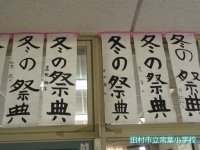 冬の祭典
冬の祭典
冬の祭典
冬の祭典
冬の祭典
田村市立常葉小学校